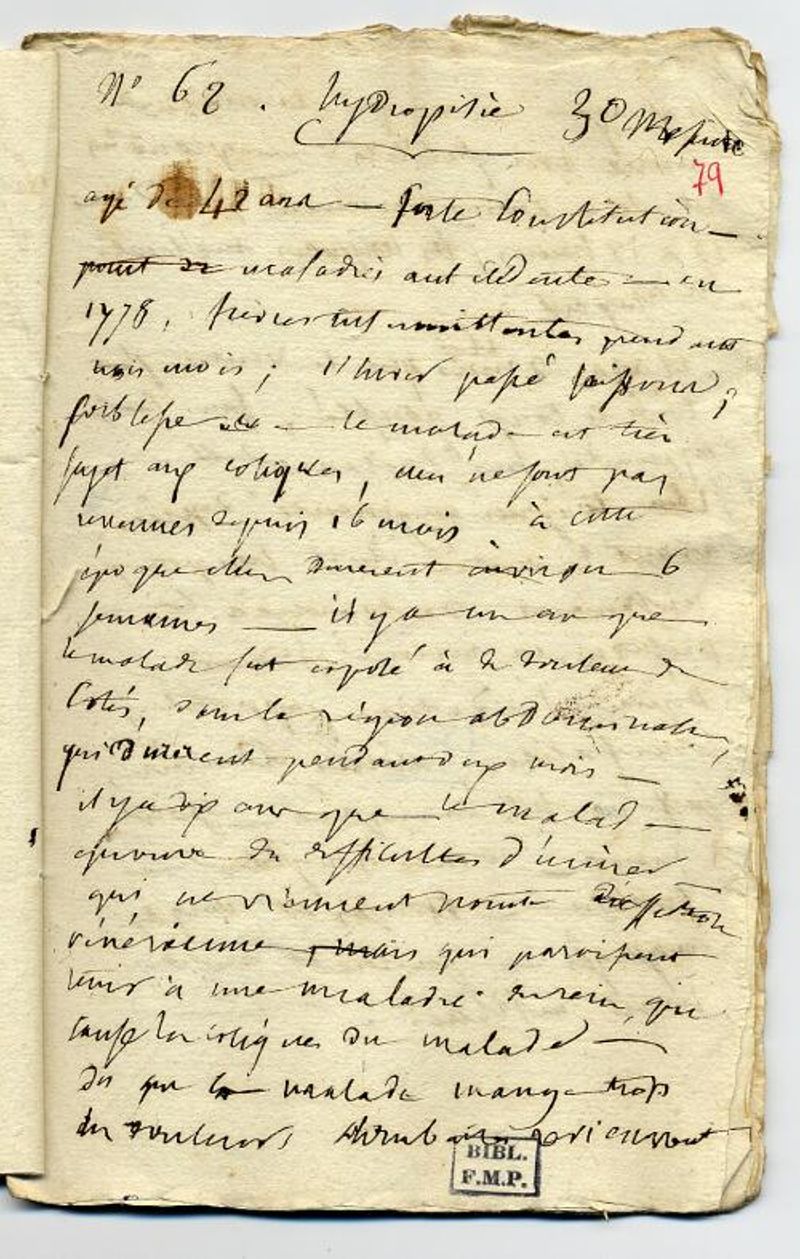 N° 62 . hydropisie 30 Messidor
79
agé de 42 ans — forte Constitution —
point de maladies antécédentes — en
1778, fièvres intermittentes pendant
trois mois ; l'hiver passé ;
foiblesse — le malade est très
sujet aux coliques, elles ne sont pas
revenues depuis 16 mois à cette
époque elles durerent environ 6
semaines — il y a un an que
le malade fut exposé à de douleurs de
Cotés, dans la région abdominale,
qui durerent pendant deux mois —
il y a dix ans que le malade —
eprouve des difficultés d'uriner
qui ne viennent point d'affection
vénérienne , mais qui paroissent
tenir à une maladie du rein, qui
cause les coliques du malade —
dès que le malade mange trop
les douleurs surviennent
BIBL.
F.M.P.